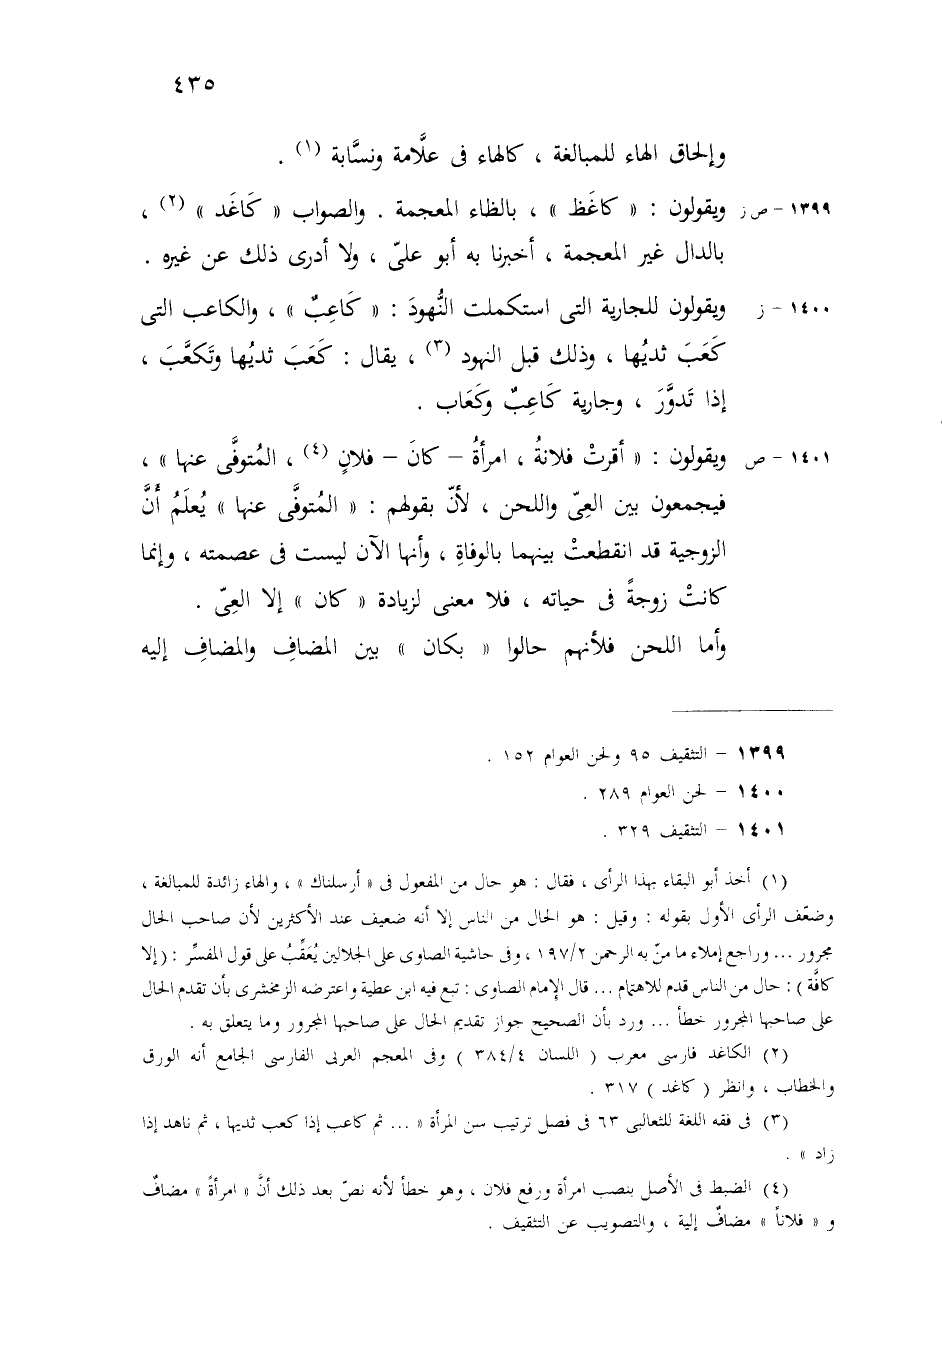 ٤٣٥
وإلحاق الهاء للمبالغة ، كالهاء فى علَّامة ونسَّابة (١) .
١٣٩٩ - ص ز ويقولون : « كاغَظ » ، بالظاء المعجمة . والصواب « كَاغَد » (٢) ،
بالدال غير المعجمة ، أخبرنا به أبو علىّ ، ولا أدرى ذلك عن غيره .
١٤٠٠ - ز ويقولون للجارية التى استكملت النُّهودَ : « كَاعِبٌ » ، والكاعب التى
كَعَبَ ثديُها ، وذلك قبل النهود (٣) ، يقال : كَعَبَ ثديُها وتَكعَّبَ ،
إذا تَدوَّرَ ، وجارية كَاعِبٌ وكَعَاب .
١٤٠١ - ص ويقولون : « أقرتْ فلانةُ ، امرأةُ – كانَ – فلانٍ (٤) ، المتوفَّى عنها » ،
فيجمعون بين العِىّ واللحن ، لأنّ بقولهم : « المُتوفَّى عنها » يُعلَمُ أَنَّ
الزوجية قد انقطعتْ بينهما بالوفاةِ ، وأنها الآن ليست فى عصمته ، وإنما
كانتْ زوجةً فى حياته ، فلا معنى لزيادة « كان » إلا العِىّ .
وأما اللحن فلأنهم حالوا « بكان » بين المضافِ والمضافِ إليه
١٣٩٩ - التثقيف ٩٥ ولحن العوام ١٥٢ .
١٤٠٠ - لحن العوام ٢٨٩ .
١٤٠١ - التثقيف ٣٢٩ .
(١) أخذ أبو البقاء بهذا الرأى ، فقال : هو حال من المفعول فى « أرسلناك » ، والهاء زائدة للمبالغة ،
وضعّف الرأى الأول بقوله : وقيل : هو الحال من الناس إلا أنه ضعيف عند الأكثرين لأن صاحب الحال
مجرور ... وراجع إملاء ما منّ به الرحمن ١٩٧/٢ ، وفى حاشية الصاوى على الجلالين يُعَقِّبُ على قول المفسِّر : ( إلا
كافَّة ) : حال من الناس قدم للاهتمام ... قال الإمام الصاوى : تبع فيه ابن عطية واعترضه الزمخشرى بأن تقدم الحال
على صاحبها المجرور خطأ ... ورد بأن الصحيح جواز تقديم الحال على صاحبها المجرور وما يتعلق به .
(٢) الكاغد فارسى معرب ( اللسان ٣٨٤/٤ ) وفى المعجم العربى الفارسى الجامع أنه الورق
والخطاب ، وانظر ( كاغد ) ٣١٧ .
(٣) فى فقه اللغة للثعالبى ٦٣ فى فصل ترتيب سن المرأة « ... ثم كاعب إذا كعب ثديها ، ثم ناهد إذا
زاد » .
(٤) الضبط فى الأصل بنصب امرأة ورفع فلان ، وهو خطأ لأنه نصّ بعد ذلك أنَّ « امرأةً » مضافٌ
و « فلاناً » مضافٌ إلية ، والتصويب عن التثقيف .